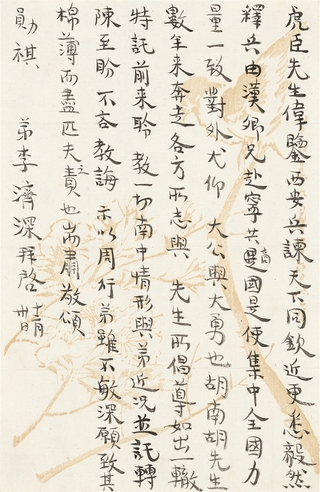 虎臣先生偉鑒西安兵諫天下同欽近更悉毅然
釋兵由漢卿兄赴寧共商還國是使集中全國力
量一致對外尤仰大公與大勇也胡南胡先生
數年来奔走各方所志與先生所倡導如出一轍
特託前来聆教一切南中情形與弟近況並託轉
陳至盼不吝教誨示以周行弟雖不敏深願致其
棉薄而盡匹夫之責也耑肅敬頌
勛祺　弟李濟深拜啓 十二月卅日